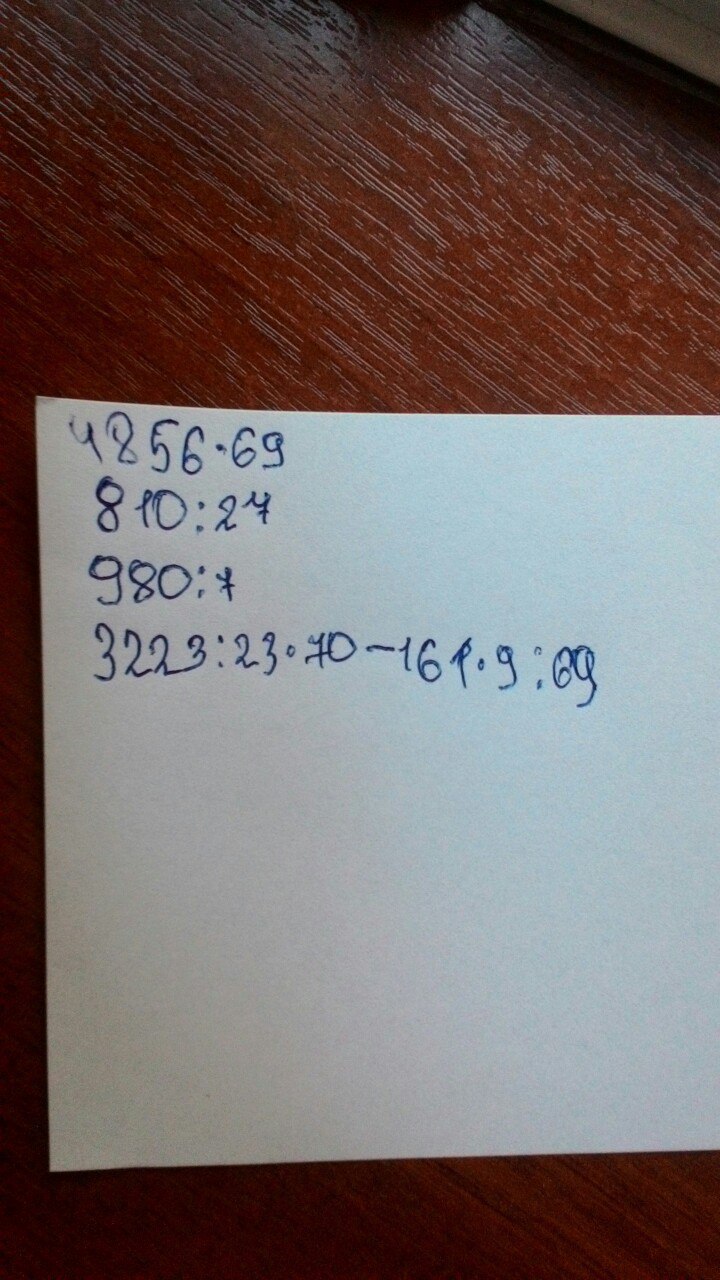 4856·69
810:27
980:7
3223:23·70-161·9:69